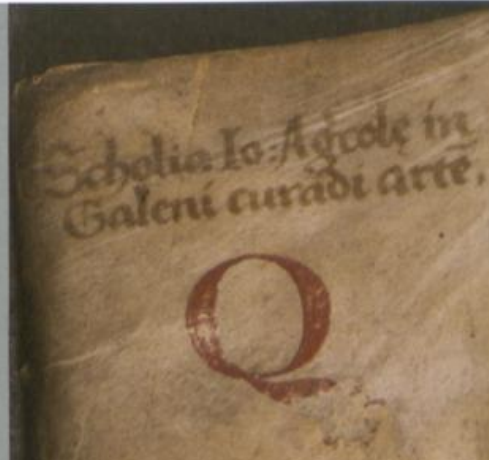 Scholia. Io: Agrcolę in
Galeni curādi artē,
Q